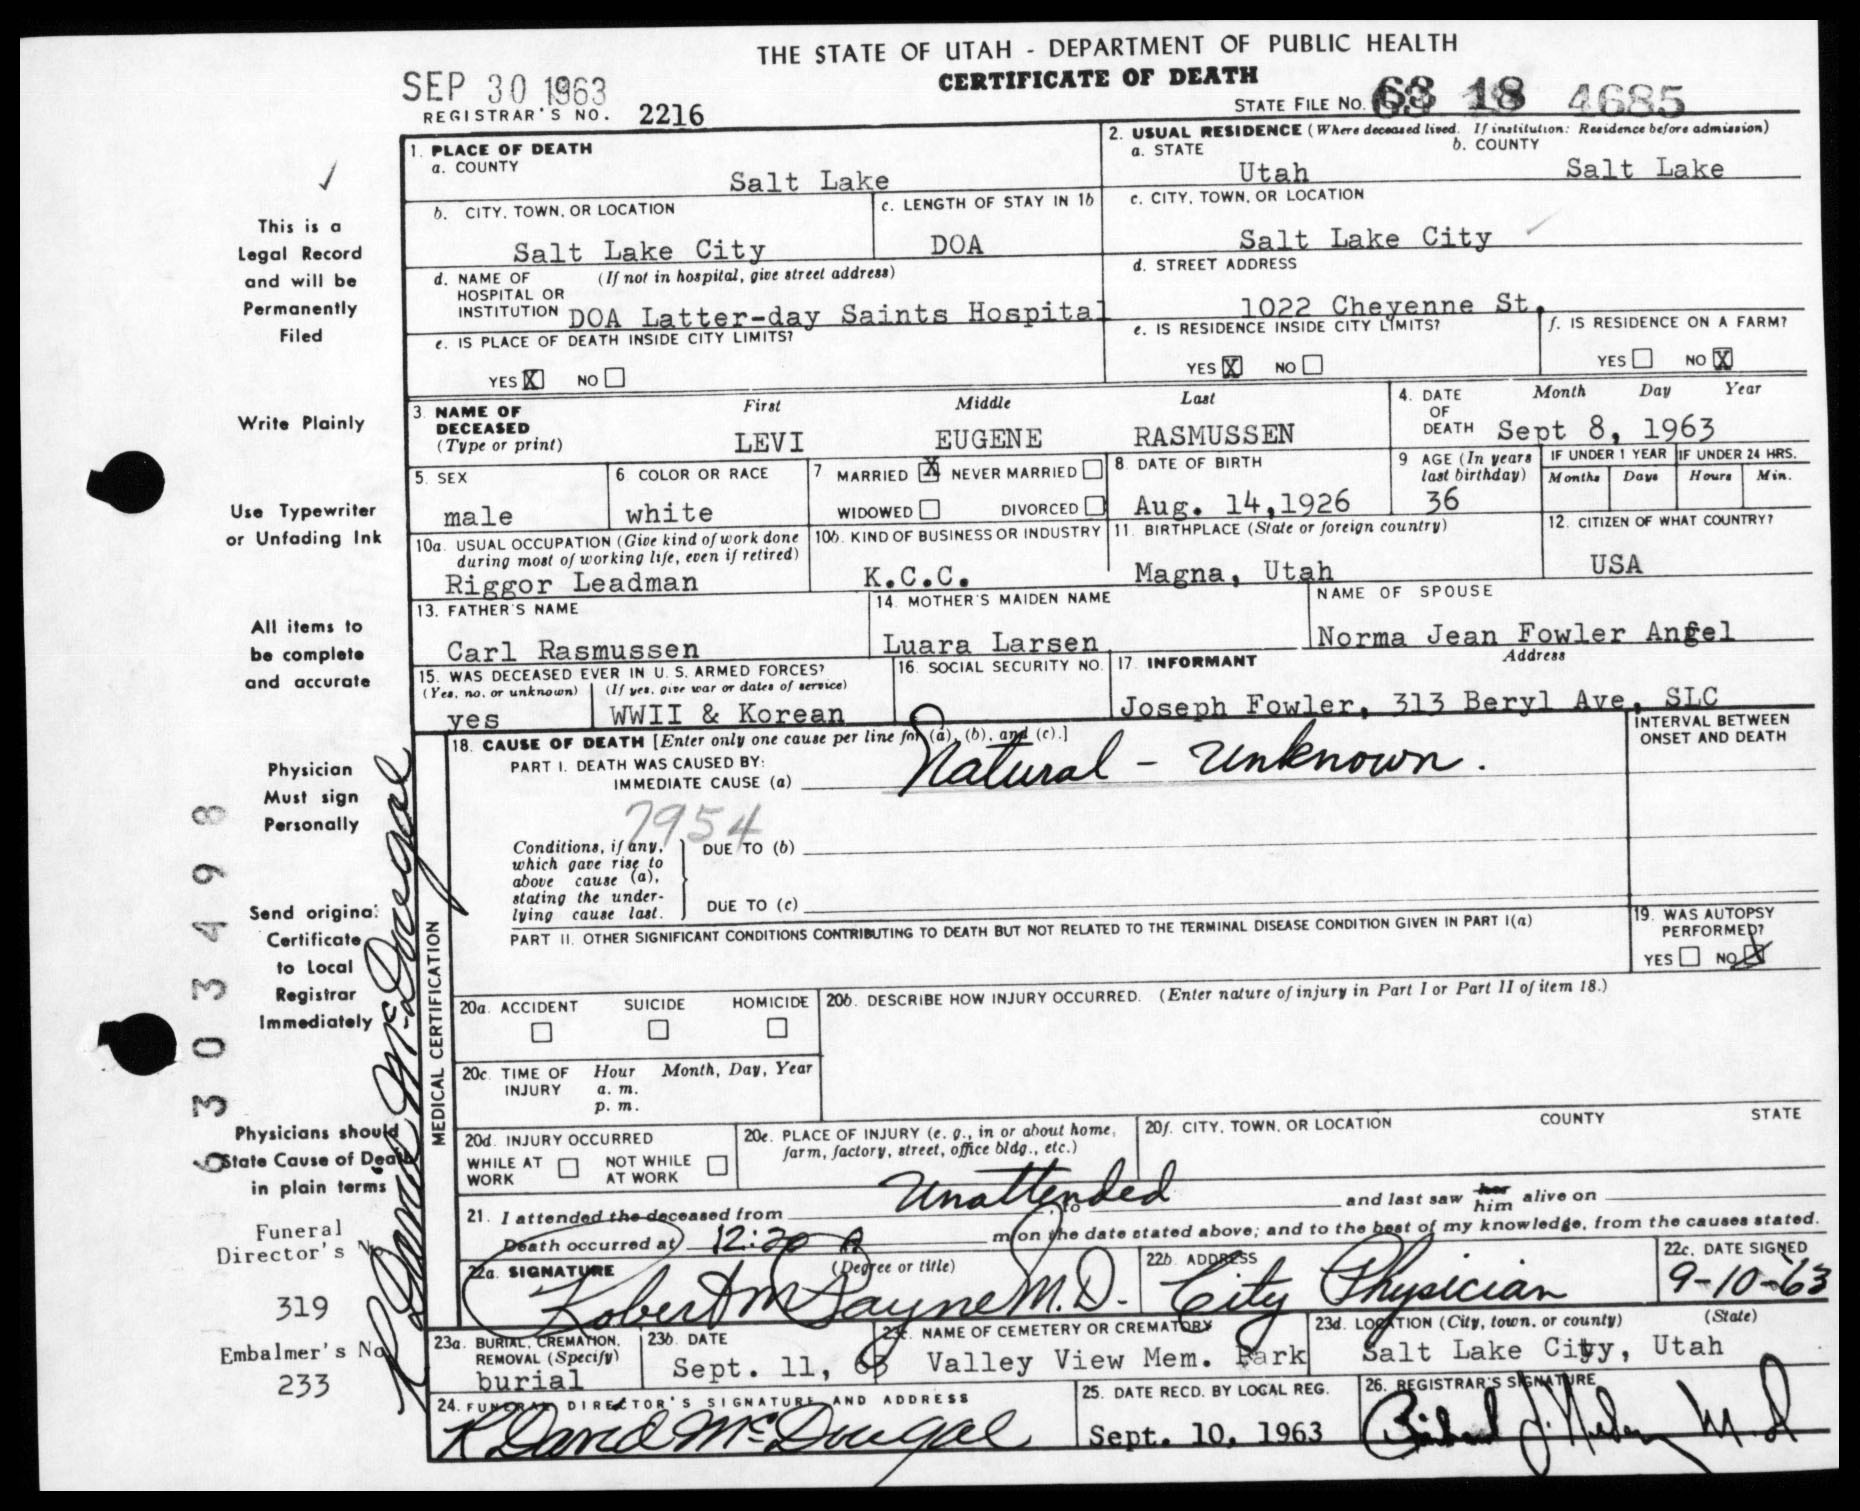 THE STATE OF UTAH - DEPARTMENT OF PUBLIC HEALTH
CERTIFICATE OF DEATH
SEP 30 1963
REGISTRAR'S NO. 2216
STATE FILE NO. 63 18 4685
This is a
Legal Record
and will be
Permanently
Filed
Write Plainly
Use Typewriter
or Unfading Ink
All items to
be complete
and accurate
Physician
Must sign
Personally
Send original
Certificate
to Local
Registrar
Immediately
Physicians should
State Cause of Death
in plain terms
Funeral
Director's No
319
Embalmer's No
233
6303498
R David McDougal
1. PLACE OF DEATH
a. COUNTY
Salt Lake
b. CITY, TOWN, OR LOCATION
Salt Lake City
c. LENGTH OF STAY IN 1b
DOA
d. NAME OF HOSPITAL OR INSTITUTION (If not in hospital, give street address)
DOA Latter-day Saints Hospital
e. IS PLACE OF DEATH INSIDE CITY LIMITS?
YES X NO
2. USUAL RESIDENCE (Where deceased lived. If institution: Residence before admission)
a. STATE
Utah
b. COUNTY
Salt Lake
c. CITY, TOWN, OR LOCATION
Salt Lake City
d. STREET ADDRESS
1022 Cheyenne St.
e. IS RESIDENCE INSIDE CITY LIMITS?
YES X NO
f. IS RESIDENCE ON A FARM?
YES NO X
3. NAME OF DECEASED (Type or print)
First Middle Last
LEVI EUGENE RASMUSSEN
4. DATE OF DEATH Month Day Year
Sept 8, 1963
5. SEX
male
6. COLOR OR RACE
white
7. MARRIED X NEVER MARRIED
WIDOWED DIVORCED
8. DATE OF BIRTH
Aug. 14,1926
9 AGE (In years last birthday)
36
IF UNDER 1 YEAR
Months Days
IF UNDER 24 HRS.
Hours Min.
10a. USUAL OCCUPATION (Give kind of work done during most of working life, even if retired)
Riggor Leadman
10b. KIND OF BUSINESS OR INDUSTRY
K.C.C.
11. BIRTHPLACE (State or foreign country)
Magna, Utah
12. CITIZEN OF WHAT COUNTRY?
USA
13. FATHER'S NAME
Carl Rasmussen
14. MOTHER'S MAIDEN NAME
Luara Larsen
NAME OF SPOUSE
Norma Jean Fowler Angel
15. WAS DECEASED EVER IN U. S. ARMED FORCES?
(Yes, no, or unknown) (If yes, give war or dates of service)
yes WWII & Korean
16. SOCIAL SECURITY NO.
17. INFORMANT Address
Joseph Fowler, 313 Beryl Ave, SLC
MEDICAL CERTIFICATION
18. CAUSE OF DEATH [Enter only one cause per line for (a), (b), and (c).]
INTERVAL BETWEEN ONSET AND DEATH
PART I. DEATH WAS CAUSED BY:
IMMEDIATE CAUSE (a) Natural - Unknown.
7954
Conditions, if any, which gave rise to above cause (a), stating the underlying cause last.
DUE TO (b)
DUE TO (c)
PART II. OTHER SIGNIFICANT CONDITIONS CONTRIBUTING TO DEATH BUT NOT RELATED TO THE TERMINAL DISEASE CONDITION GIVEN IN PART I(a)
19. WAS AUTOPSY PERFORMED?
YES NO X
20a. ACCIDENT SUICIDE HOMICIDE
20b. DESCRIBE HOW INJURY OCCURRED. (Enter nature of injury in Part I or Part II of item 18.)
20c. TIME OF INJURY Hour Month, Day, Year
a. m.
p. m.
20d. INJURY OCCURRED
WHILE AT WORK NOT WHILE AT WORK
20e. PLACE OF INJURY (e. g., in or about home, farm, factory, street, office bldg., etc.)
20f. CITY, TOWN, OR LOCATION COUNTY STATE
21. I attended the deceased from Unattended, to and last saw her him alive on
Death occurred at 12:30 A m on the date stated above; and to the best of my knowledge, from the causes stated.
22a. SIGNATURE (Degree or title)
Robert M Jayne M.D.
22b. ADDRESS
City Physician
22c. DATE SIGNED
9-10-63
23a. BURIAL, CREMATION, REMOVAL (Specify)
burial
23b. DATE
Sept. 11, 63
23c. NAME OF CEMETERY OR CREMATORY
Valley View Mem. Park
23d. LOCATION (City, town, or county) (State)
Salt Lake City, Utah
24. FUNERAL DIRECTOR'S SIGNATURE AND ADDRESS
R David McDougal
25. DATE RECD. BY LOCAL REG.
Sept. 10, 1963
26. REGISTRAR'S SIGNATURE
M D